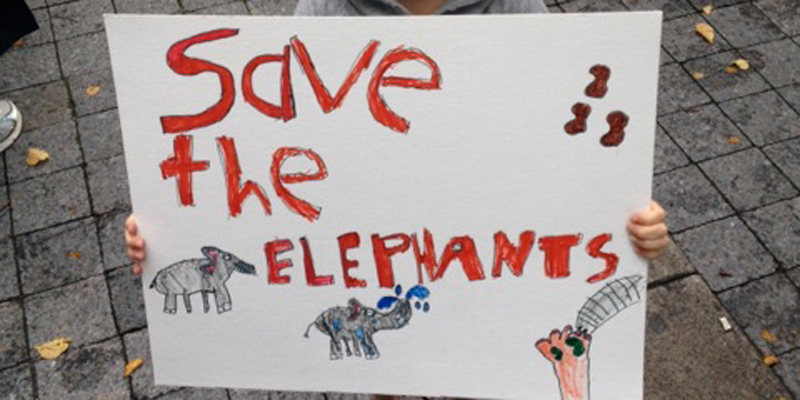 Save
the
ELEPHANTS